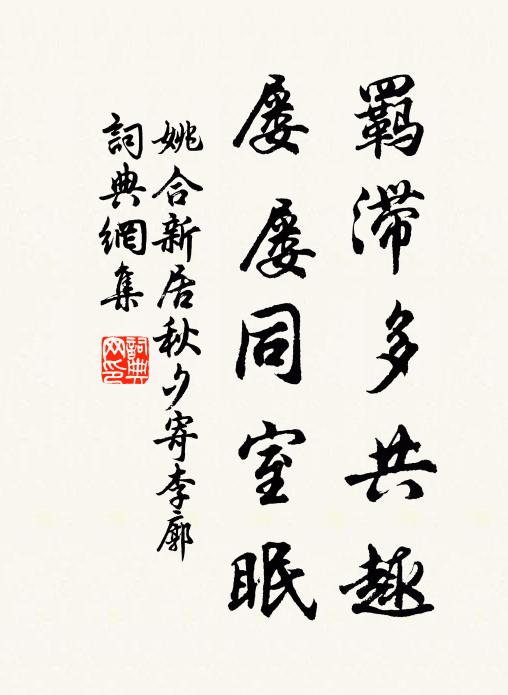 羈滯多共趣
屡屡同室眠
姚合新居秋夕寄李廓
詞典網集
詞典網印